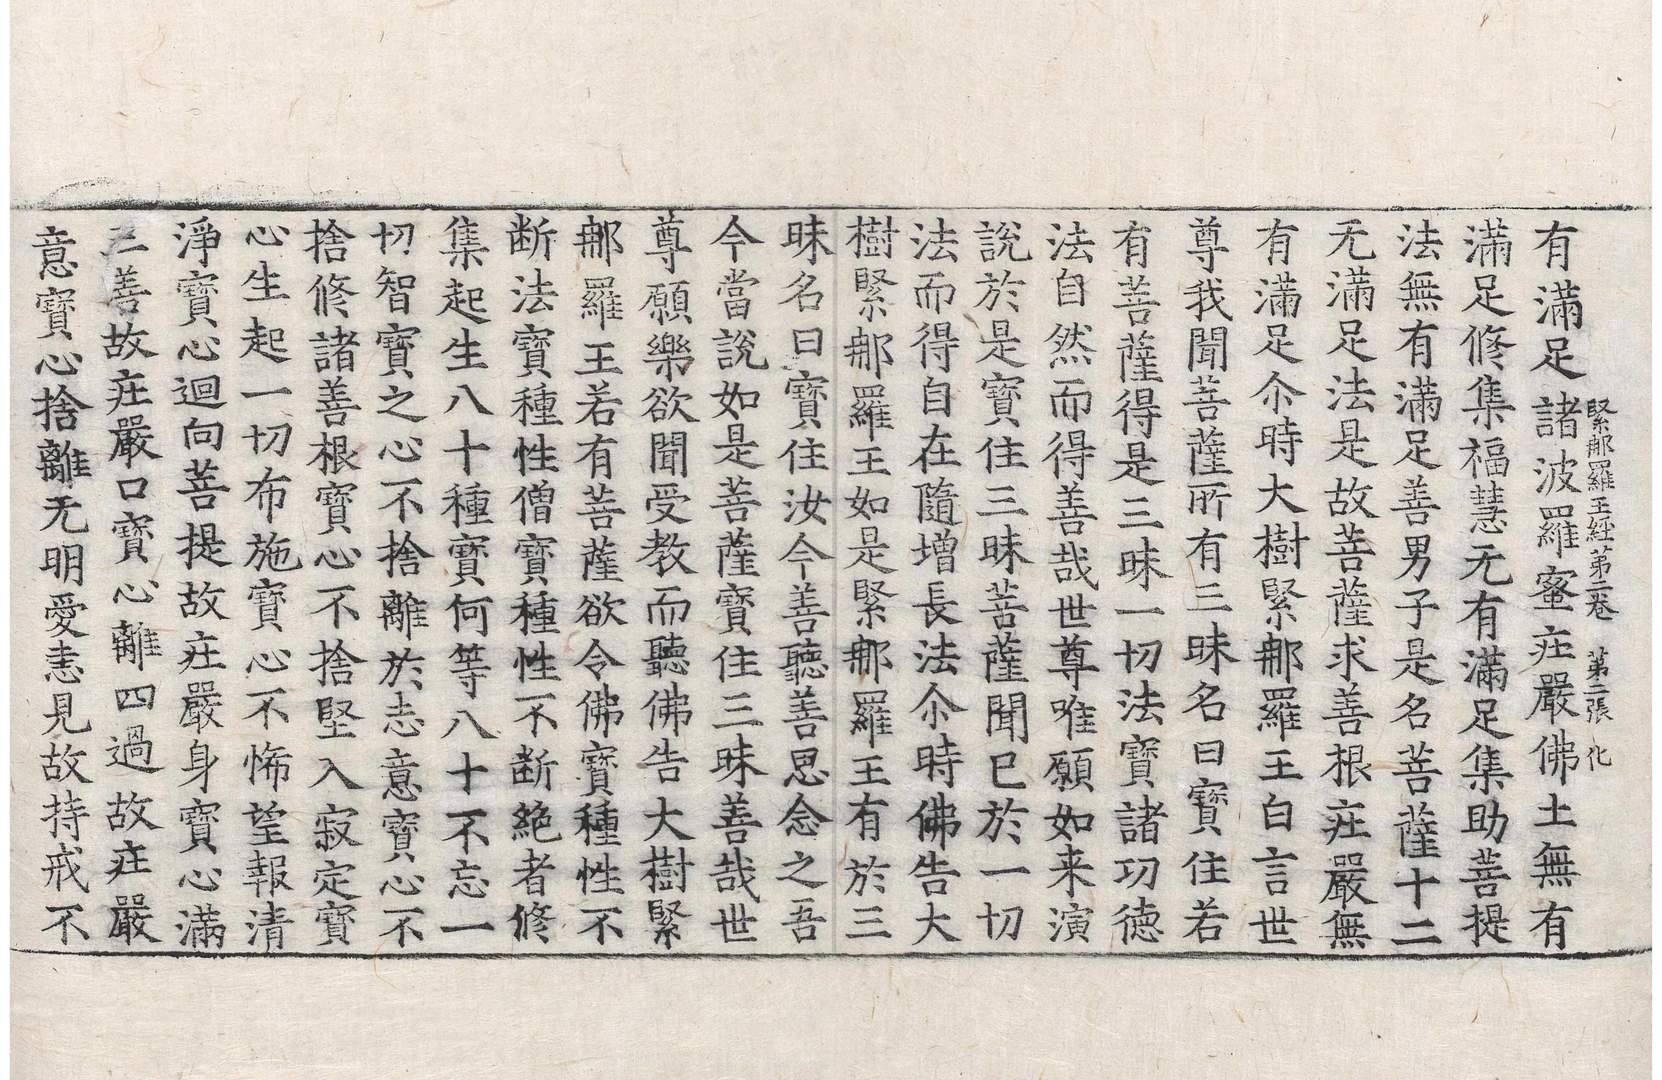 緊那羅王経第二巻　第二張　化
有滿足諸波羅蜜庄嚴佛土無有
滿足修集福慧无有滿足集助菩提
法無有滿足善男子是名菩薩十二
无滿足法是故菩薩求善根庄嚴無
有滿足尒時大樹緊那羅王白言世
尊我聞菩薩所有三昧名曰寶住若
有菩薩得是三昧一切法寶諸功德
法自然而得善哉世尊唯願如来演
說於是寶住三昧菩薩聞已於一切
法而得自在隨増長法尒時佛告大
樹緊那羅王如是緊那羅王有於三
昧名曰寶住汝今善聽善思念之吾
今當說如是菩薩寶住三昧善哉世
尊願樂欲聞受教而聽佛告大樹緊
那羅王若有菩薩欲令佛寶種性不
断法寶種性僧寶種性不断絕者修
集起生八十種寶何等八十不忘一
切智寶之心不捨離於志意寶心不
捨修諸善根寶心不捨堅入寂定寶
心生起一切布施寶心不悕望報清
淨寶心迴向菩提故庄嚴身寶心滿
三善故庄嚴口寶心離四過故庄嚴
意寶心捨離无明愛恚見故持戒不